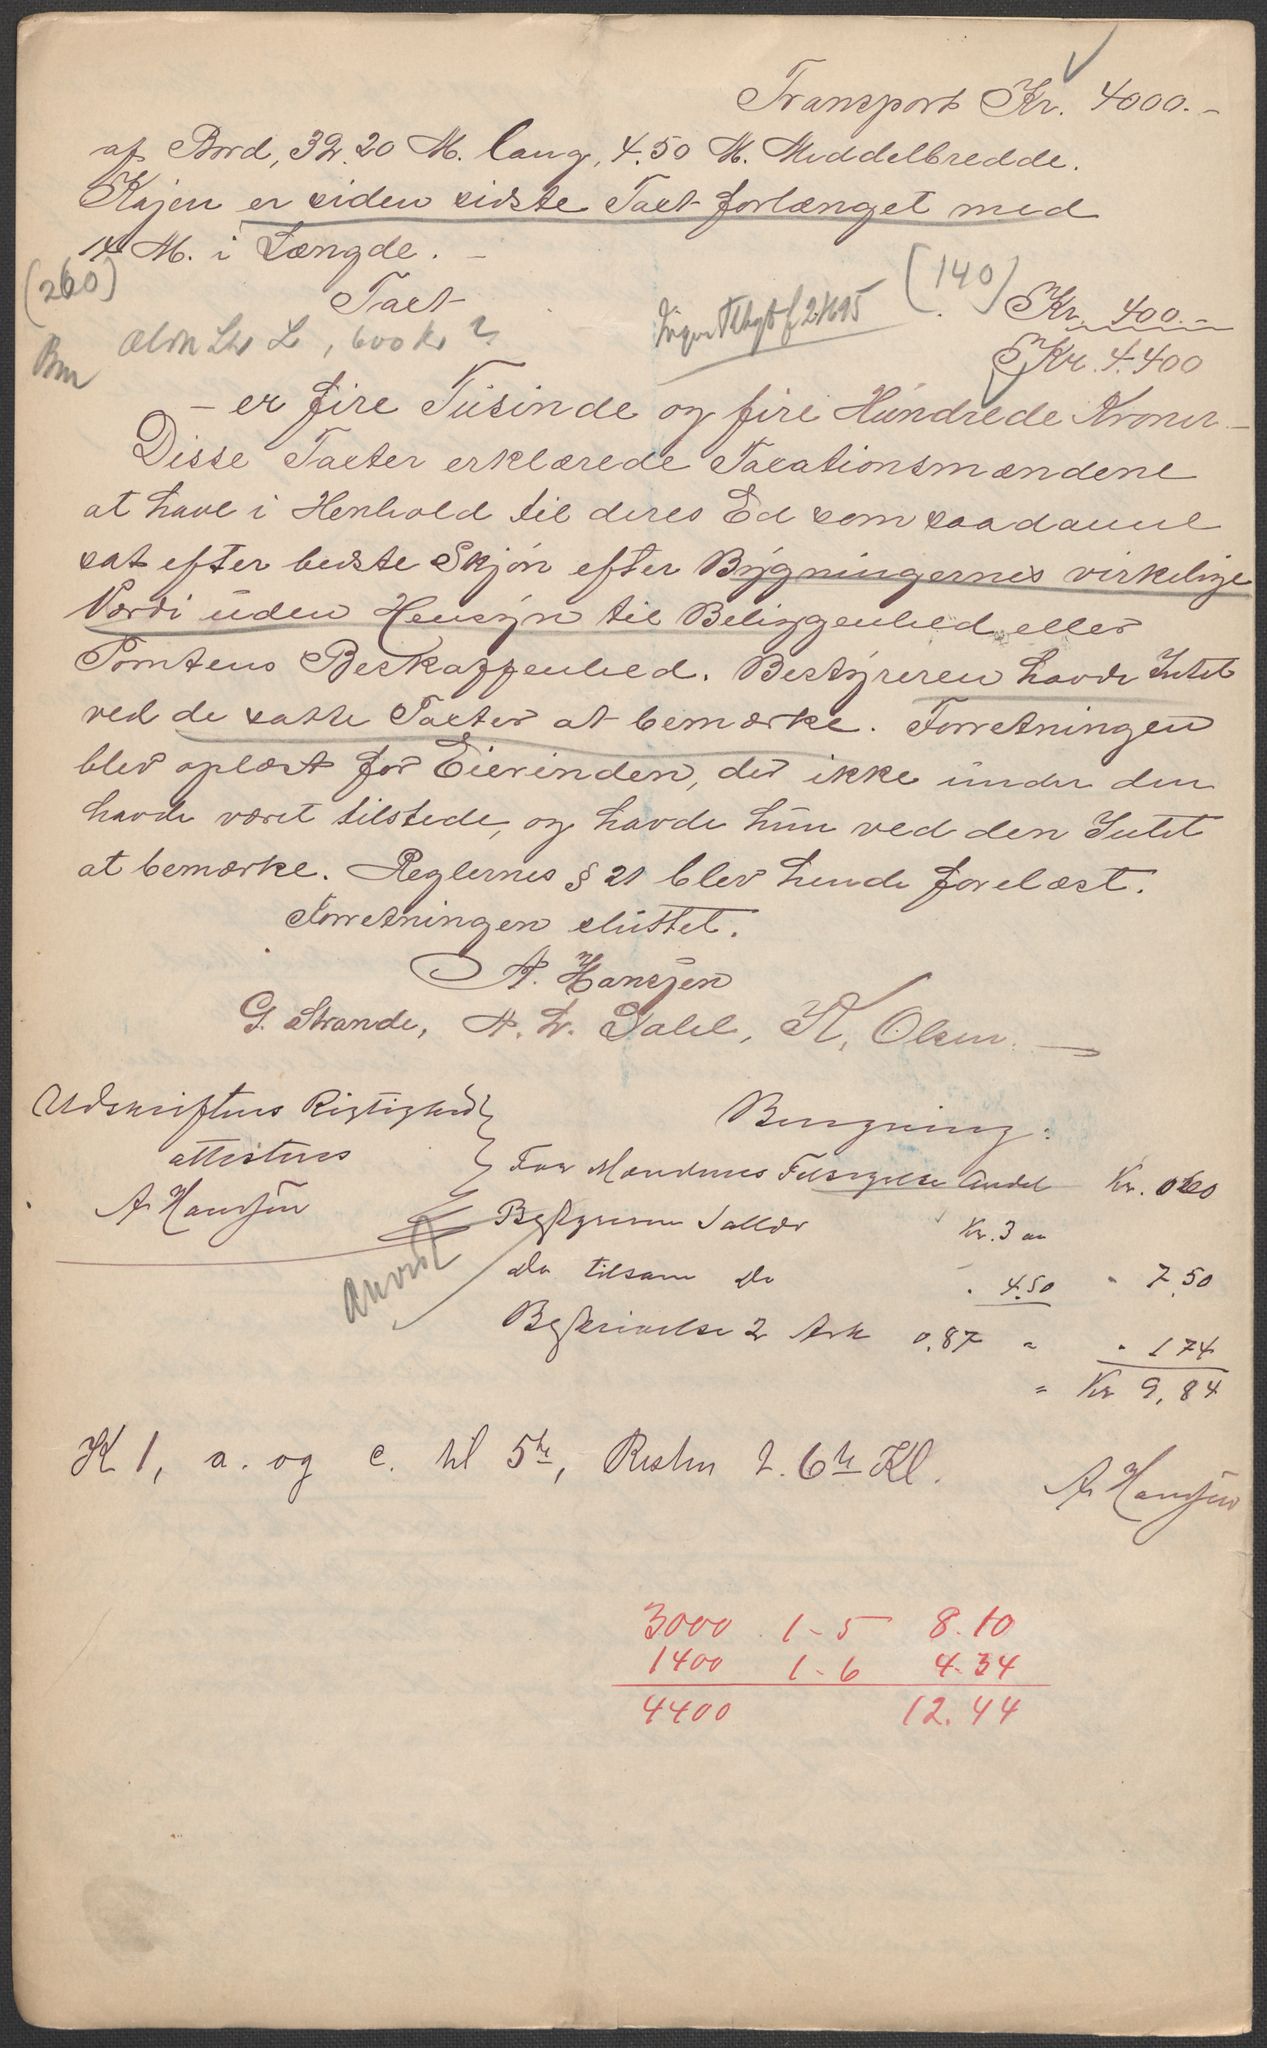 Transport Kr. 4000.-
af Bord, 32.20 M. lang, 4.50 M. Middelbredde.
Kajen er siden sidste Taxt forlænget med
14 M. i Længde. -
(260) Taxt (140) Kr. 400.-
600 Kr ?
Kr. 4.400
- er fire Tusinde og fire Hundrede Kroner -
Disse Taxter erklærede Taxationsmændene
at have i Henhold til deres Ed som saadanne
sat efter bedste Skjøn efter Bygningernes virkelige
Værdi uden Hensyn til Beliggenhed eller
Tomtens Beskaffenhed. Bestyreren havde Intet
ved de satte Taxter at bemærke. Forretningen
blev oplæst for Eierinden, der ikke under den
havde været tilstede, og havde hun ved den Intet
at bemærke. Reglernes § 21 blev hende forelæst.
Forretningen sluttet.
A. Hansen
G. Strande, A. Dahl, K. Olsen.
Udskriftens Rigtighed
attesteres
A Hansen
Anvist
Beregning:
For Mændenes Tilsigelse Andel Kr. 0.60
Bestyreren Sallær Kr. 3 00
do tilsam do " 4.50 " 7.50
Beskrivelse 2 Ark 0.87 " " 1 74
= Kr 9,84
K 1, a. og c. til 5te, Resten t. 6te Kl.
A Hansen
3000 1-5 8.10
1400 1-6 4.34
4400 12.44